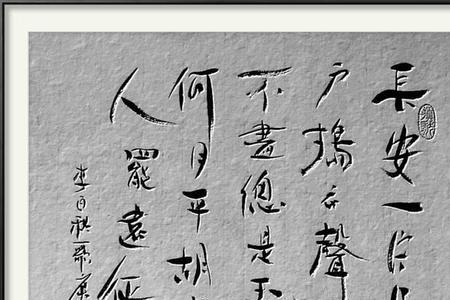 長安一片
戶搗衣聲
不盡總是玉
何日平胡
人罷遠征
李白秋歌